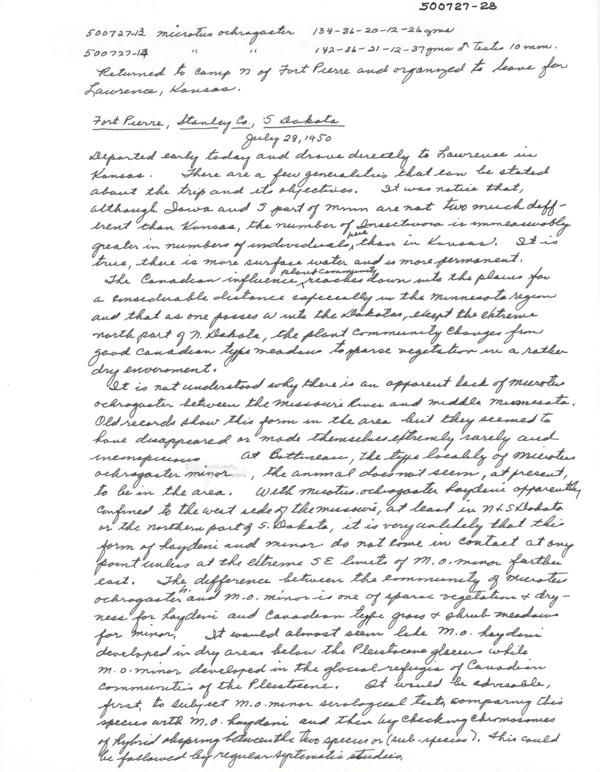 500727-28
500727-13 microtus ochrogaster 134-36-20-12-26gms
500727-14 " " 142-36-21-12-37gms ♂ Testes 10 mm.
Returned to camp N of Fort Pierre and organized to leave for
Lawrence, Kansas.
Fort Pierre, Stanley Co., S Dakota
July 28, 1950
Departed early today and drove directly to Lawrence in
Kansas. There are a few generalities that can be stated
about the trip and its objectives. It was notice that,
although Iowa and S part of Minn are not two much diff-
erent than Kansas, the number of Insectivora is immeasurably
greater in numbers of individuals, than in Kansas. It is
true, there is more surface water and is more permanent.
The Canadian influence plant community reaches down into the plains for
a considerable distance especially in the Minnesota region
and that as one passes W into the Dakotas, except the extreme
north part of N. Dakota, the plant community changes from
good Canadian type meadows to sparse vegetation in a rather
dry enviroment.
It is not understood why there is an apparent lack of microtus
ochrogaster between the Missouri River and middle Minnesota.
Old records show this form in the area but they seemed to
have disappeared or made themselves extremly rarely and
inconspicuous At Bottineau, the type locality of Microtus
ochrogaster minor, the animal does not seem, at present,
to be in the area. With Microtus ochrogaster haydeni apparently
confined to the west side of the missouri, at least in N & S Dakota
or the northern part of S. Dakota, it is very unlikely that this
form of haydeni and minor do not come in contact at any
point unless at the extreme SE limits of M.o. minor farther
east. The difference between the community of Microtus
ochrogaster and M.o. minor is one of sparse vegetation & dry-
ness for haydeni and Canadian type grass & shrub meadows
for minor. It would almost seem like M.o. haydeni
developed in dry areas below the Pleistocene glaciers while
M.o. minor developed in the glacial refugia of Canadian
Communities of the Pleistocene. It would be advisable,
first, to subject M.o. minor serological tests, comparing this
species with M.o. haydeni and then by checking chromosomes
of hybrid offspring between the two species or (sub-species). This could
be followed by regular systematic studies.